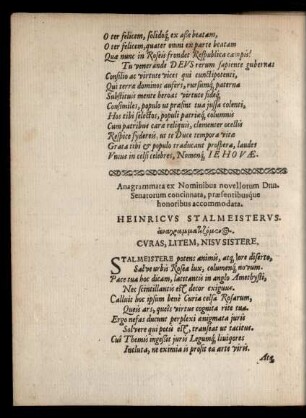 O ter felicem, solidoq́; ex asse beatam,
O ter felicem, quater omni ex parte beatam
Quæ nunc in Roseis frondet Respublica campis!
Tu venerande DEVS rerum sapiente gubernas
Consilio ac virtute vices qui cunctipotenti,
Qui terra dominos aufers, rursumq́; paterna
Substituis mente heroas virtute
Consimiles, populo ut præsint tua jussa colenti,
Hos tibi selectos, populi patriæq́; columnas
Cum patribus cura reliquis, clementer ocellis
Respice sydereis, ut te Duce tempora vitæ
Grata tibi & populo traducant prospera, laudes
Unius in celsi celebres, Numenq́; IEHOVÆ.
Anagrammata ex Nominibus novellorum Duū
Senatorum concinnata, præsentibusque
honoribus accommodata.
HEINRICVS STALMEISTERVS.
ἀναγραμματιζόμενος.
CVRAS, LITEM, NISV SISTERE.
STALMEISTERE potens animis, acq́; ore diserto,
Salve urbis Roseæ lux, columenq́; novum.
Pace tua hoc dicam, lactitantis in anglo Amethysti,
Nec scintillantis est decor exiguus.
Calluit hoc ipsum bene Curia celsa Rosarum,
Queis ars, queis virtus cognita rite tua.
Ergo nefas ducunt perplexi ænigmata juris
Solvere qui potis est, transeat ut tacitus.
Cui Themis ingessit juris Legumq́; liquores
Inclyta, ne eximia is prosit ea arte viris.
Atq́;